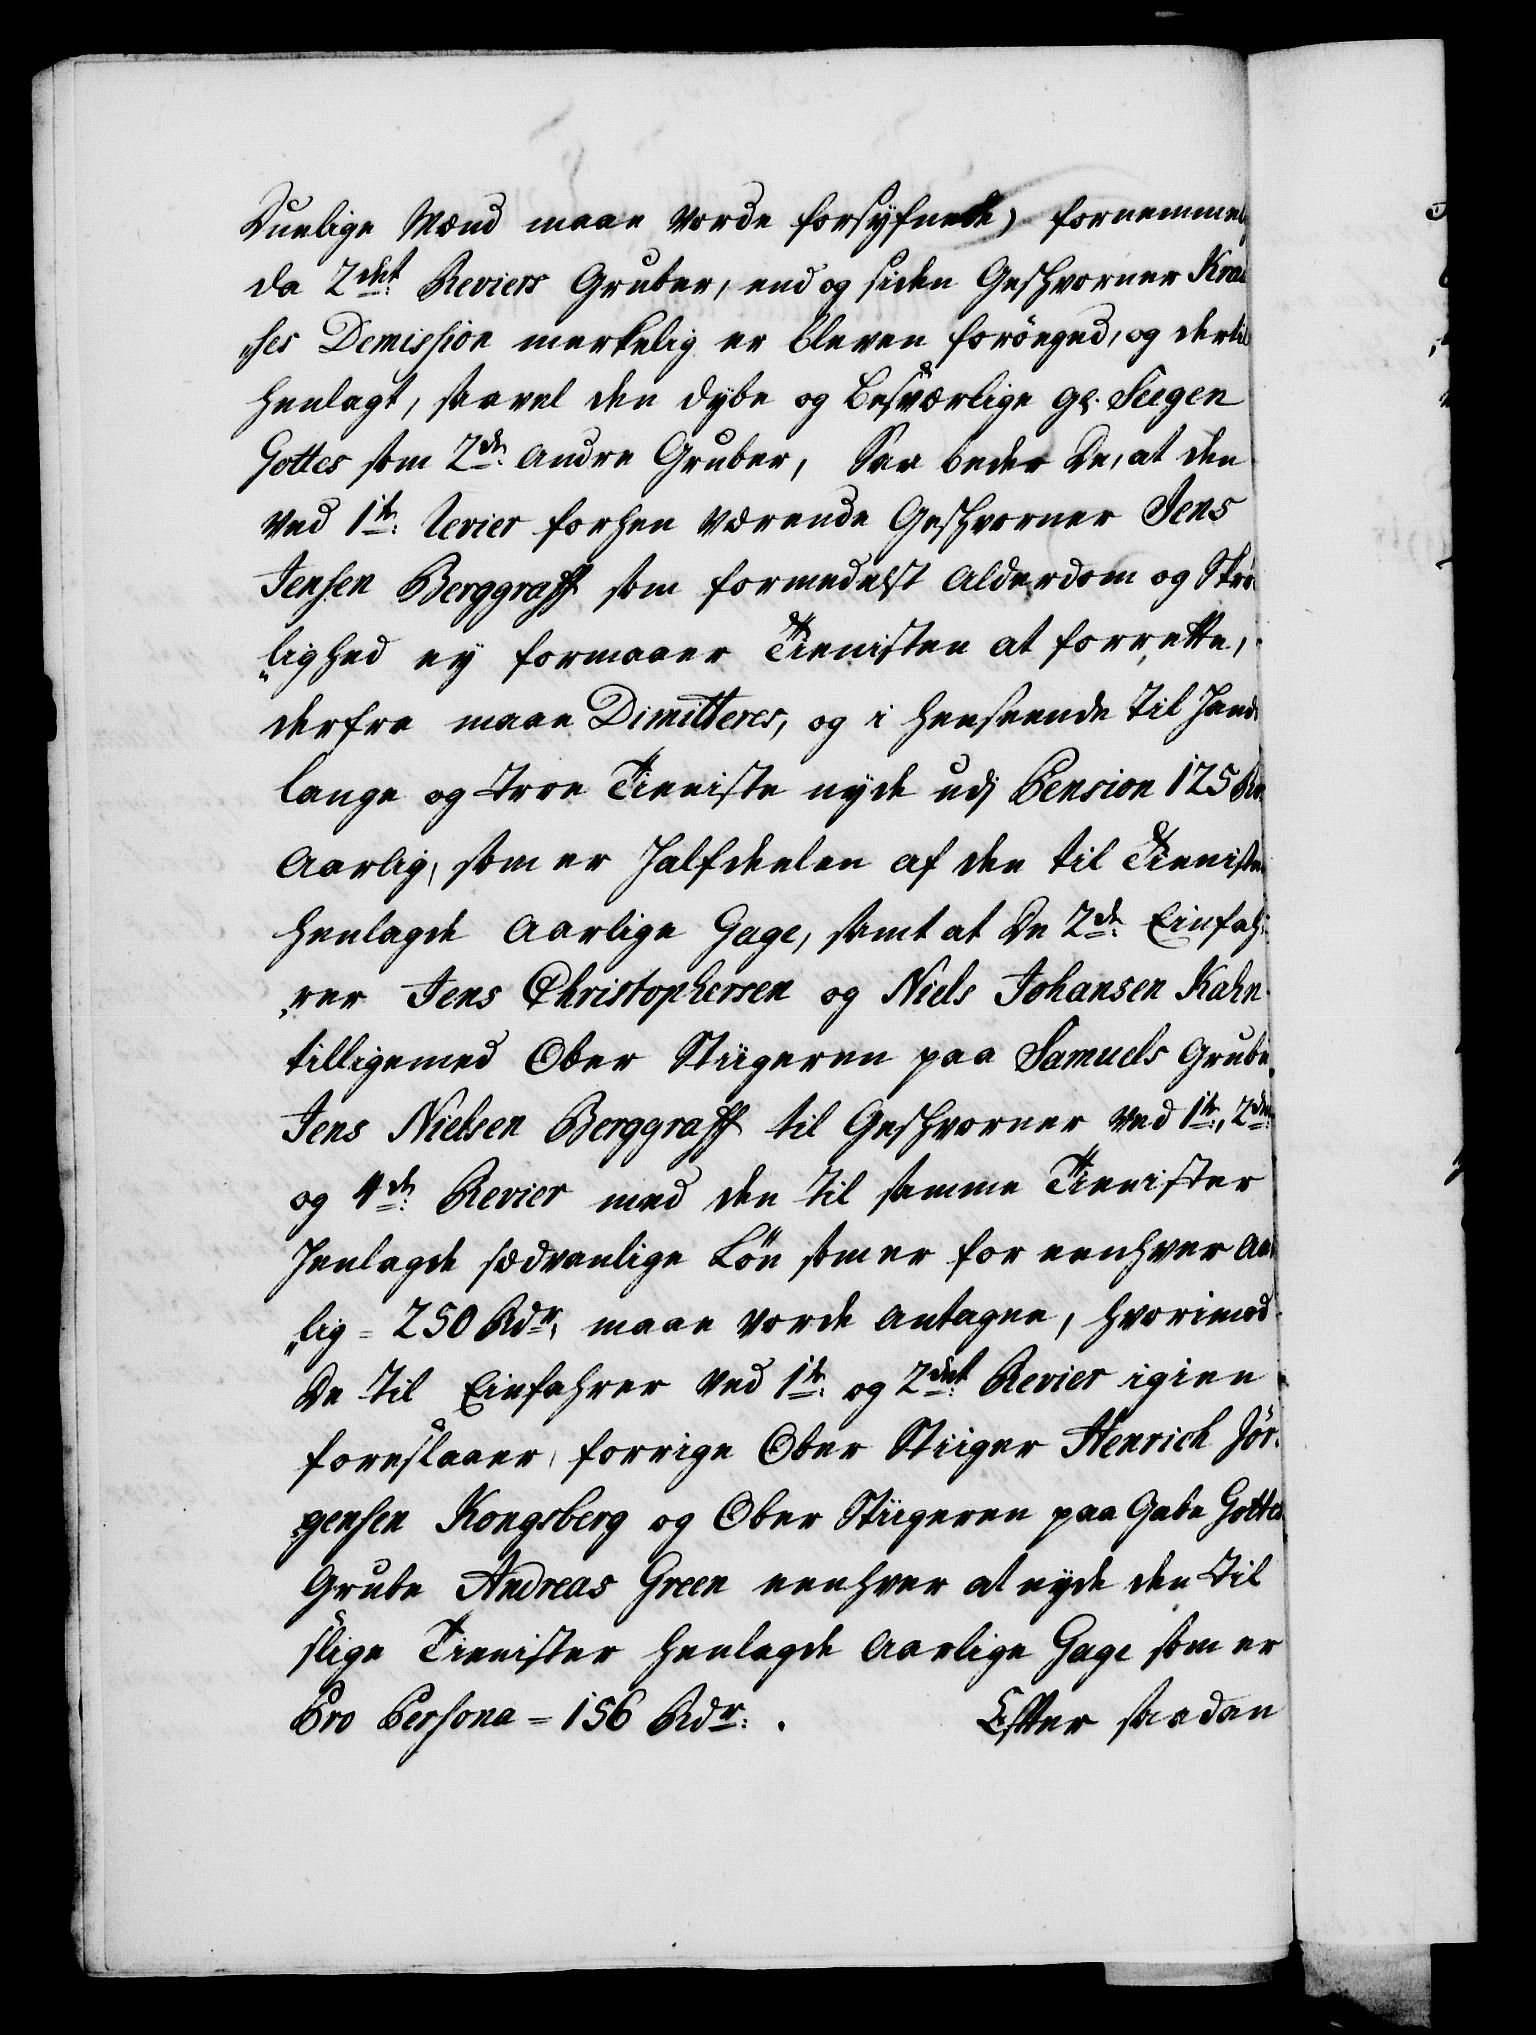 Duelige Mænd maae vorde forsÿfnede, fornemme
da 2det Reviers Gruber, endog siden Geshvorner Kra
„ses Demission merkelig er bleven forøeged, og dertil
henlagt, saavel den dybe og besværlige gl. Seegen
Gottes som 2de andre Gruber, Saa beder de, at den
ved 1te Revier forhen værende Geshvorner Jens
Jensen Berggraff som formedelst Alderdom og Skrø
„lighed ey formaaer Tienisten at forrette,
derfra maae Dimitteres, og i henseende til hans
lange og troe Tieniste nyde udj Pension 125 Rdr
Aarlig, som er Halfdeelen af den til Tienisten
henlagde Aarlige Gage, samt at de 2de Einfah
„rer Jens Christophersen og Niels Johansen Kahn
tilligemed Ober Stiigeren paa Samuels Grube
Jens Nielsen Berggraff til Geshvorner ved 1te, 2den
og 4de Revier med den til samme Tienister
henlagde sædvanlige Løn som er for eenhver aar
„lig = 250 Rdr, maae vorde antagne, hvorimod
de til Einfahrer ved 1te og 2det Revier igien
foreslaaer, forrige Ober Stiiger Henrich Jör
„gensen Kongsberg og Ober Stiigeren paa Gabe Gottes
Grube Andreas Green eenhver at nyde den til
slige Tienister henlagde Aarlige Gage som er
Pro Persona = 156 Rdr. Efter saadan